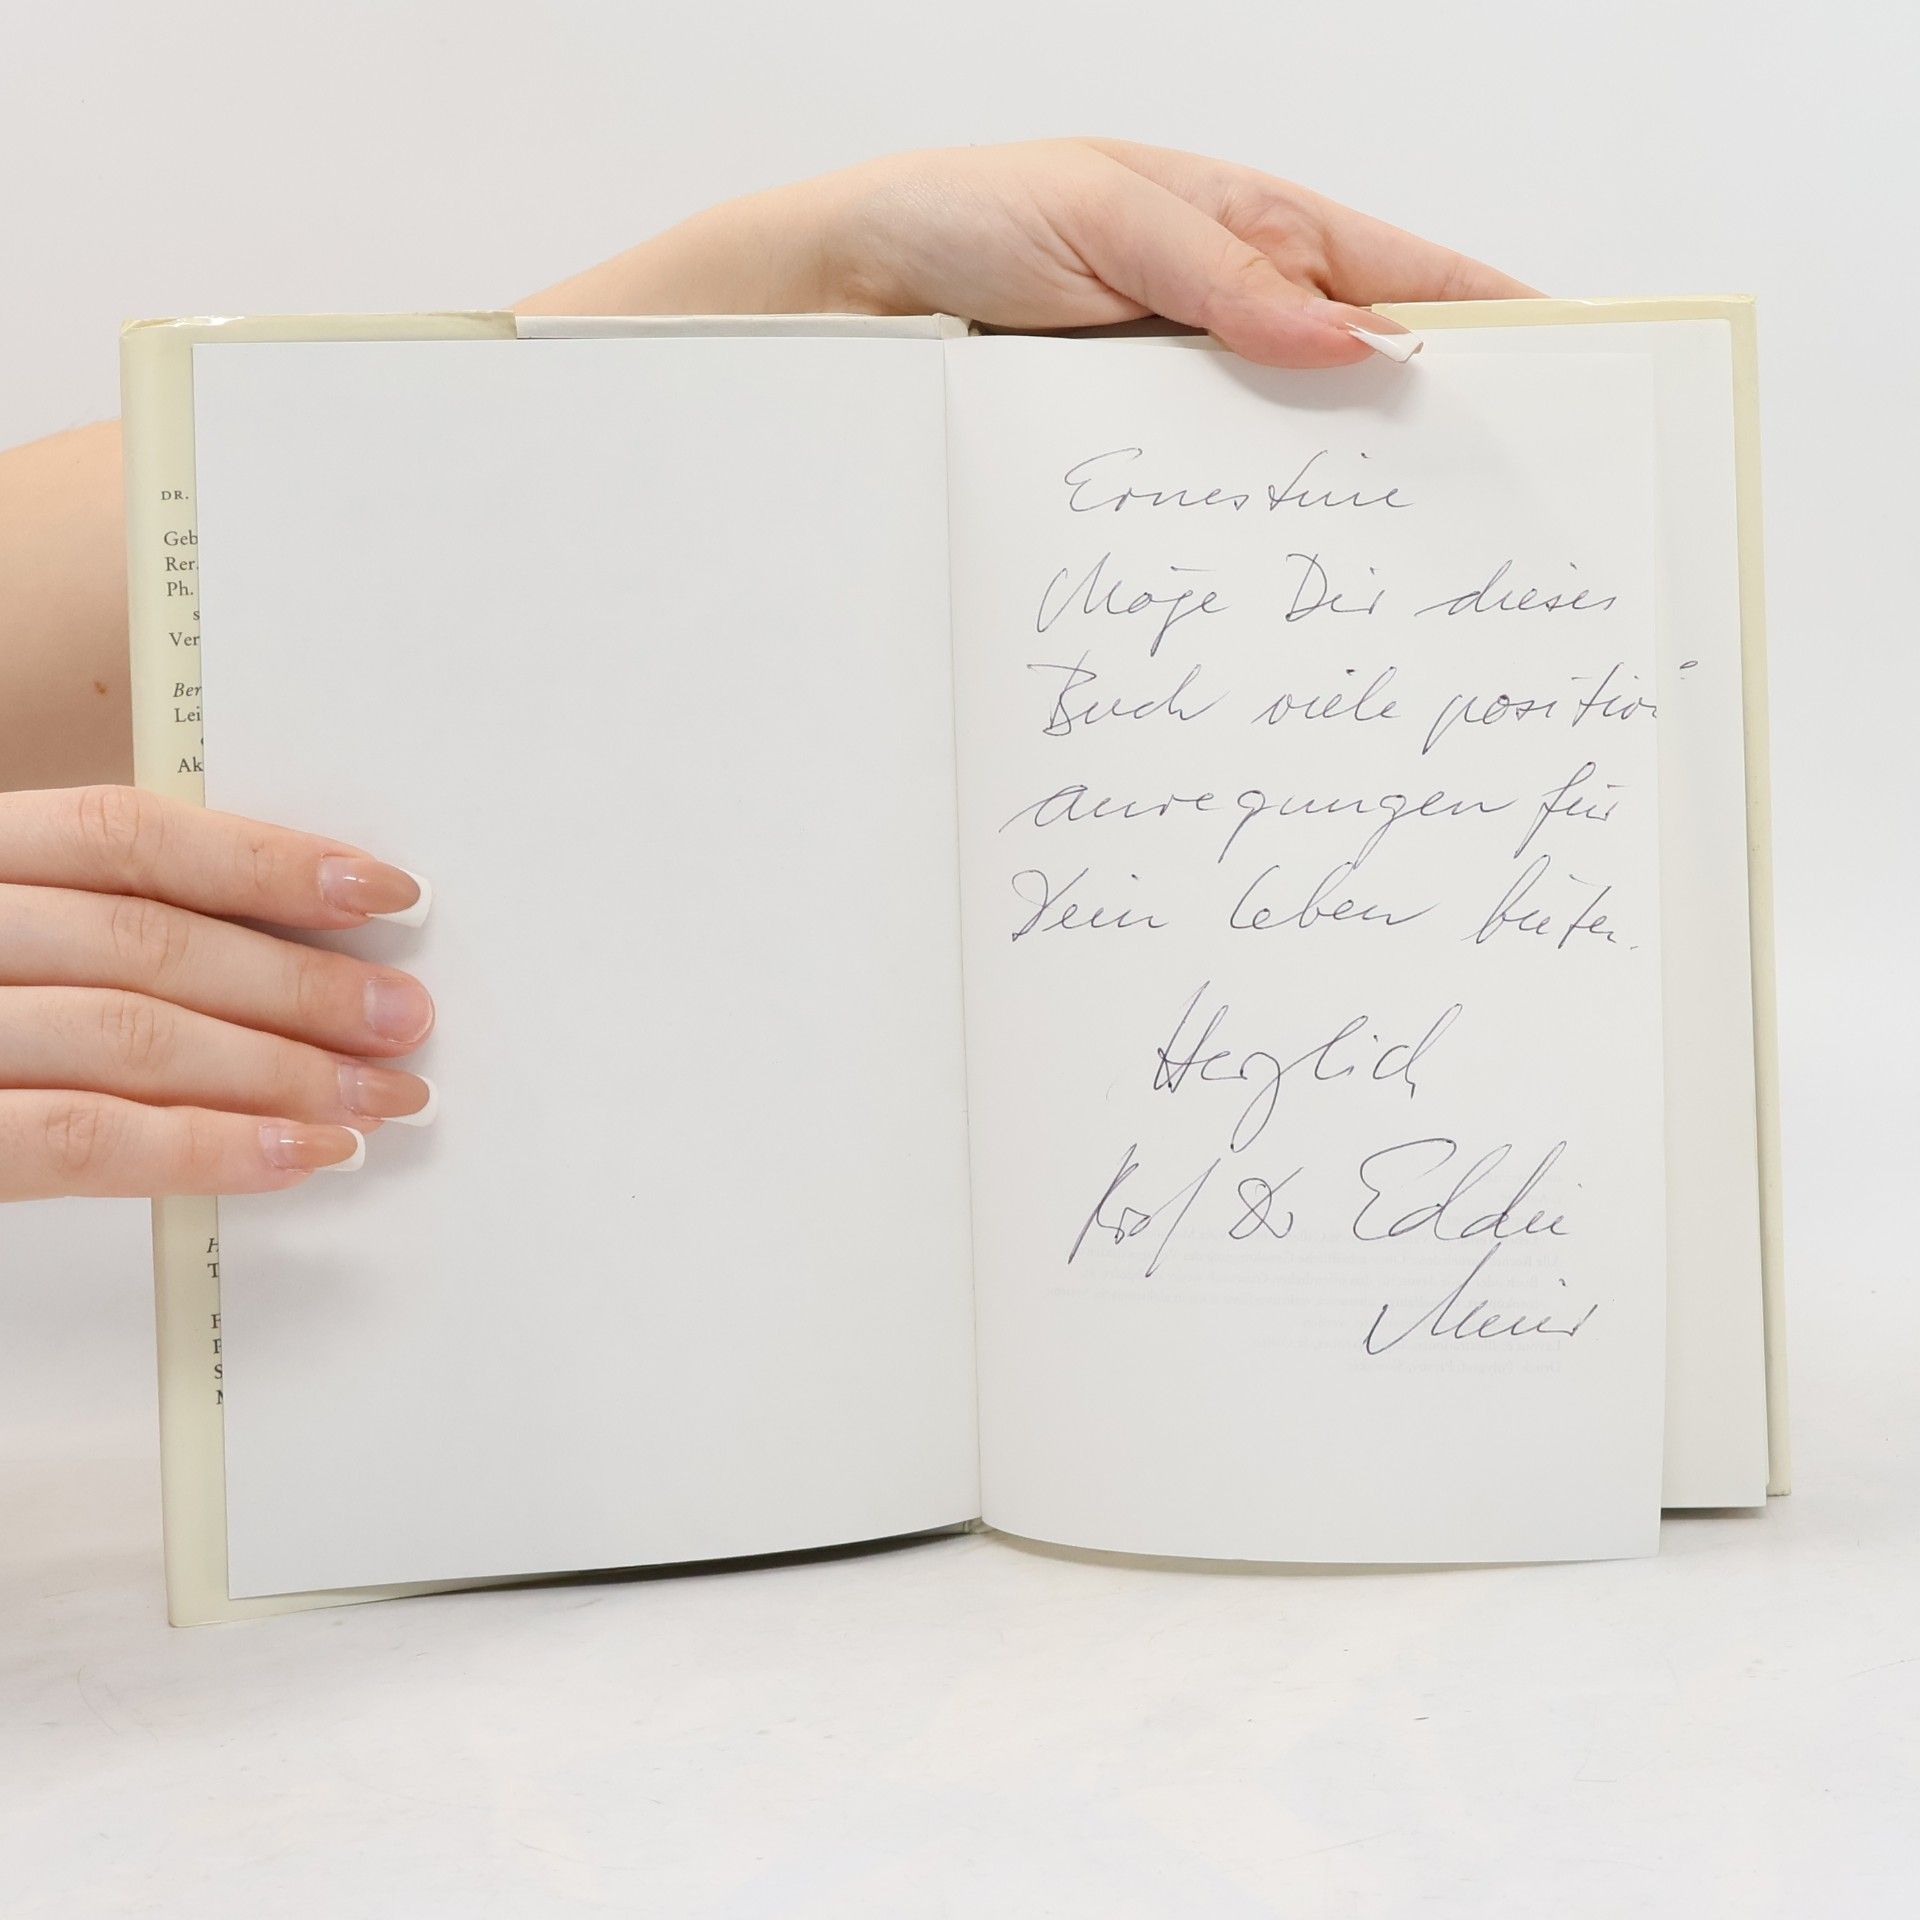 DR.
Geb
Rer.
Ph.
s
Ver
Ber
Lei
Ak
H
T
F
P
S
M
Ernestine
Möge Dir dieses
Buch viele positive
Anregungen für
Dein Leben bieten.
Herzlich
Prof Dr Eddie
Meier